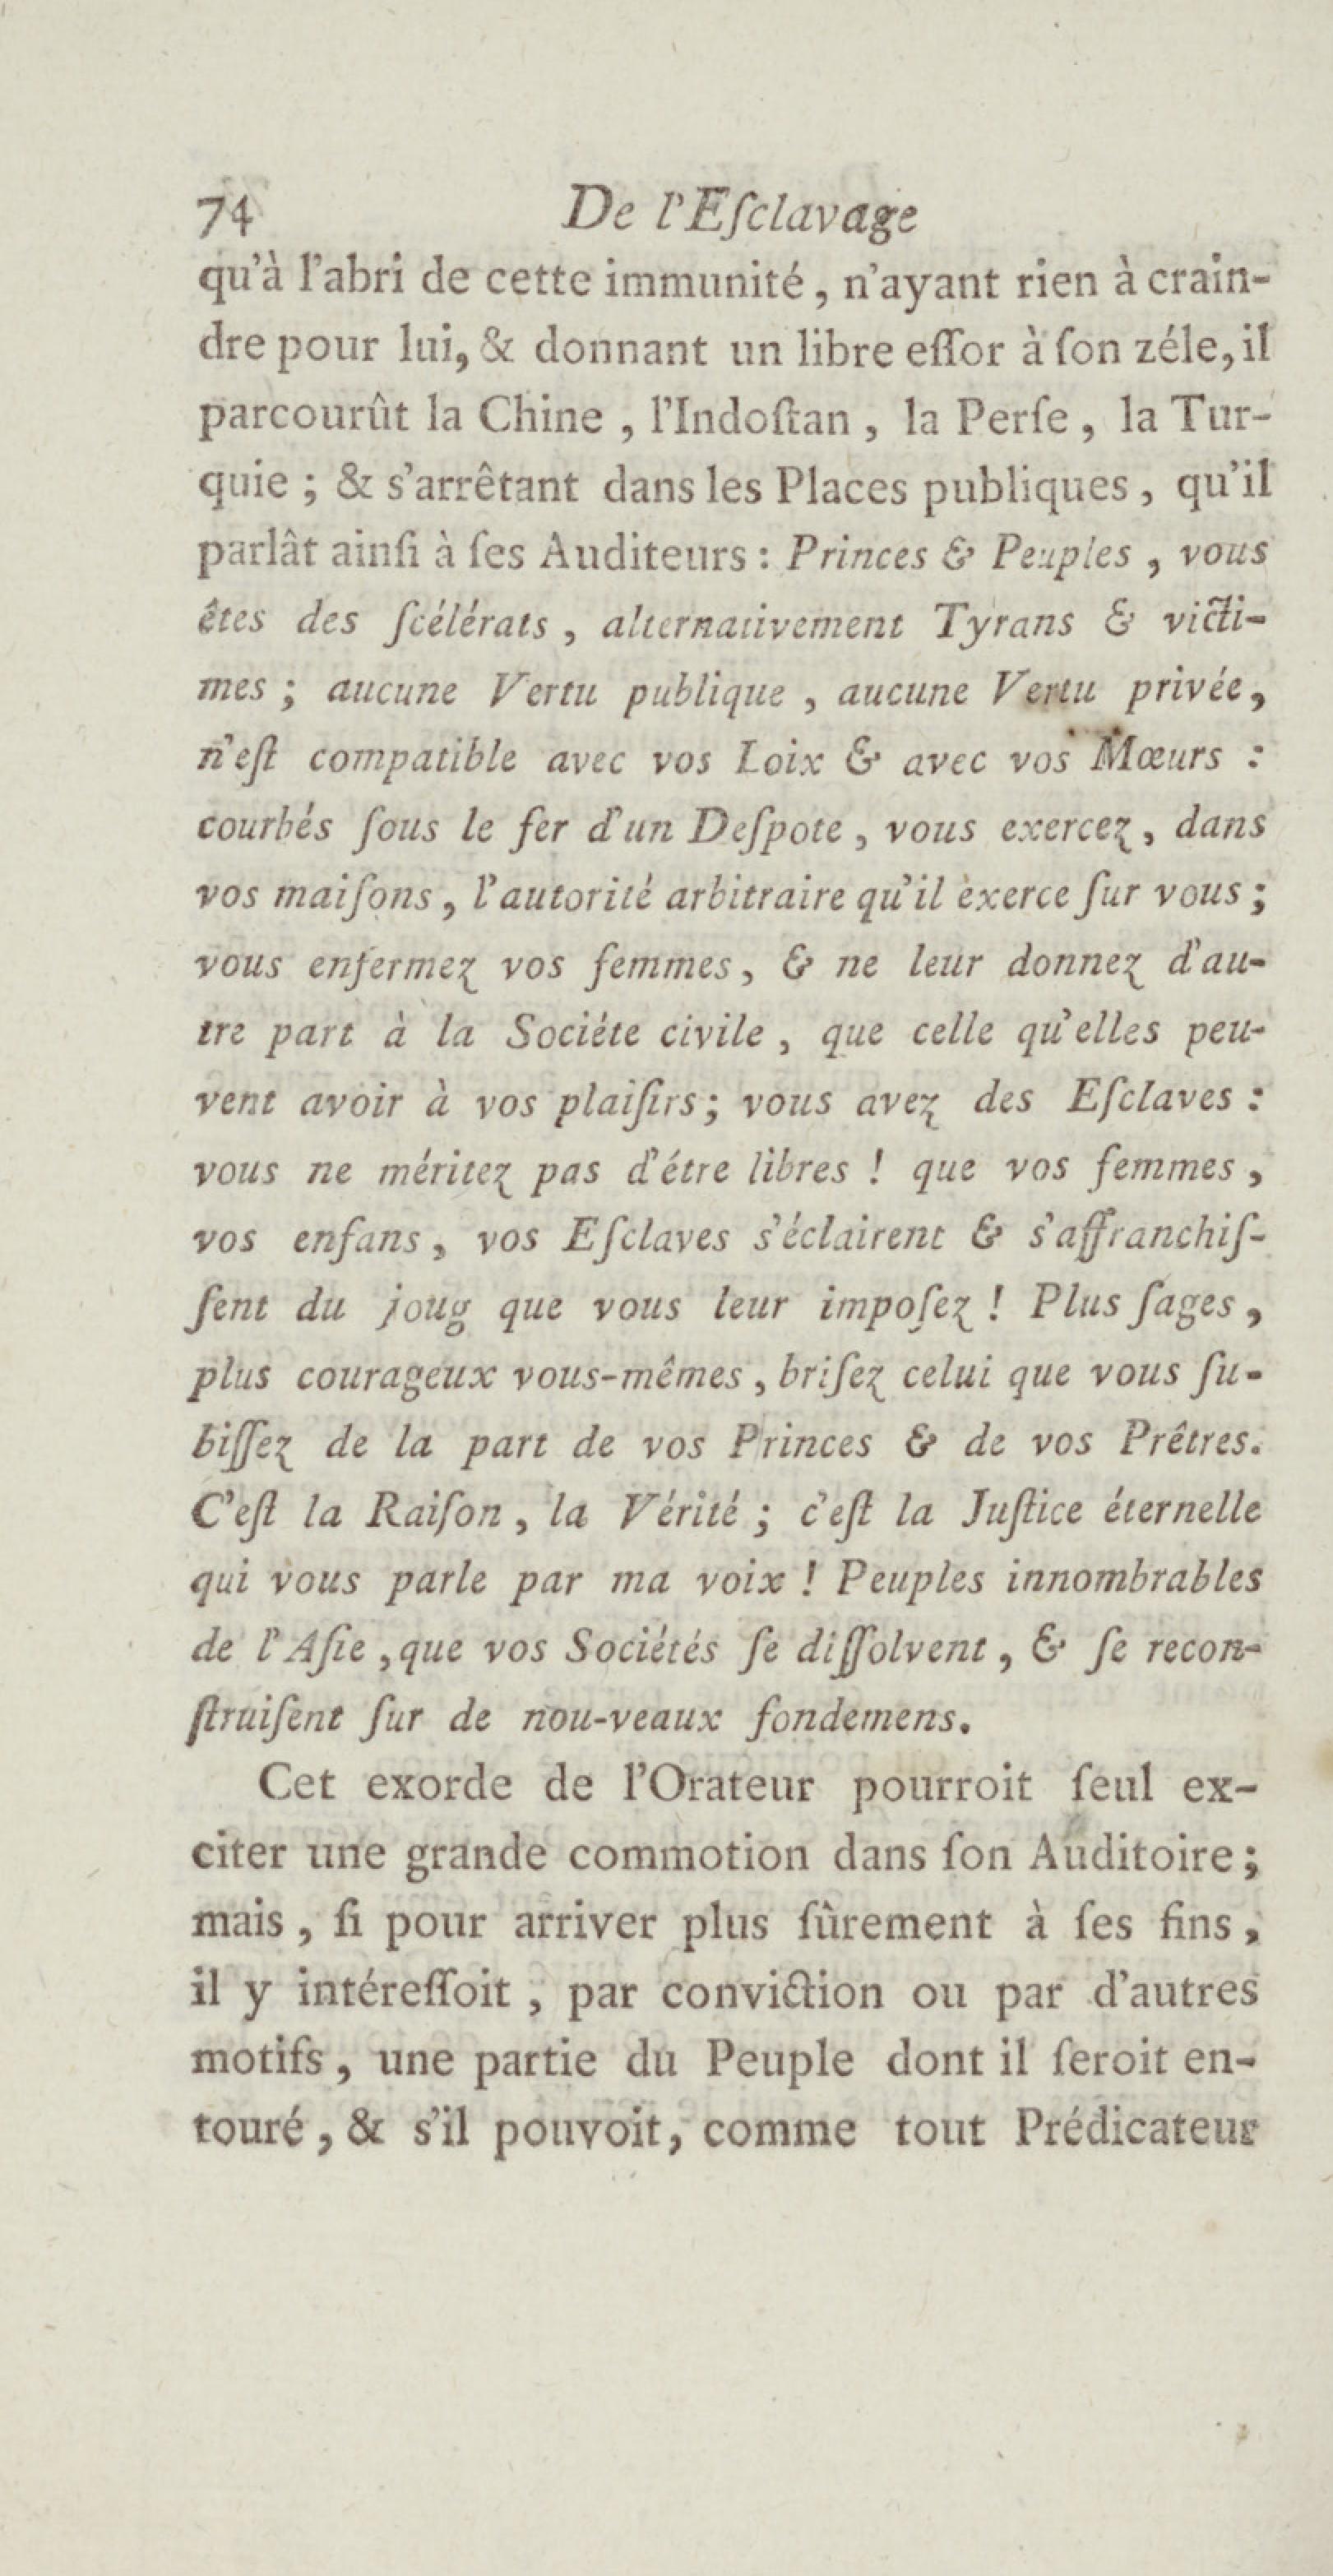 74 De l'Eſclavage
qu'à l'abri de cette immunité, n'ayant rien à crain-
dre pour lui, & donnant un libre eſſor à ſon zéle, il
parcourût la Chine, l'Indoſtan, la Perſe, la Tur-
quie ; & s'arrêtant dans les Places publiques, qu'il
parlât ainſi à ſes Auditeurs : Princes & Peuples, vous
êtes des ſcélérats, alternativement Tyrans & victi-
mes ; aucune Vertu publique, aucune Vertu privée,
n'eſt compatible avec vos Loix & avec vos Mœurs :
courbés ſous le fer d'un Deſpote, vous exercez, dans
vos maiſons, l'autorité arbitraire qu'il exerce ſur vous ;
vous enfermez vos femmes, & ne leur donnez d'au-
tre part à la Sociéte civile, que celle qu'elles peu-
vent avoir à vos plaiſirs ; vous avez des Eſclaves :
vous ne méritez pas d'étre libres ! que vos femmes,
vos enfans, vos Eſclaves s'éclairent & s'affranchiſ-
ſent du joug que vous leur impoſez ! Plus ſages,
plus courageux vous-mêmes, briſez celui que vous ſu-
biſſez de la part de vos Princes & de vos Prêtres.
C'eſt la Raiſon, la Vérité ; c'eſt la Juſtice éternelle
qui vous parle par ma voix ! Peuples innombrables
de l'Aſie, que vos Sociétés ſe diſſolvent, & ſe recon-
ſtruiſent ſur de nou-veaux fondemens.
Cet exorde de l'Orateur pourroit ſeul ex-
citer une grande commotion dans ſon Auditoire ;
mais, ſi pour arriver plus ſûrement à ſes fins,
il y intéreſſoit, par conviction ou par d'autres
motifs, une partie du Peuple dont il ſeroit en-
touré, & s'il pouvoit, comme tout Prédicateur